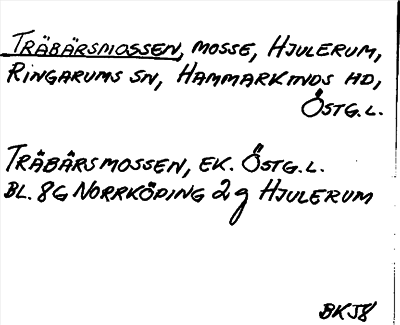 TRÄBÄRSMOSSEN, MOSSE, HJULERUM,
RINGARUMS SN, HAMMARKINDS HD,
ÖSTG.L.
TRÄBÄRSMOSSEN, EK. ÖSTG.L.
BL. 8G NORRKÖPING 2 g HJULERUM
BKJ8